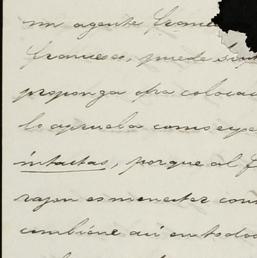 un agente franc
frances, puede
proponga otra coloca
lo apruebas como
intactas, porque al f
razon es menester con
combiene asi en todos